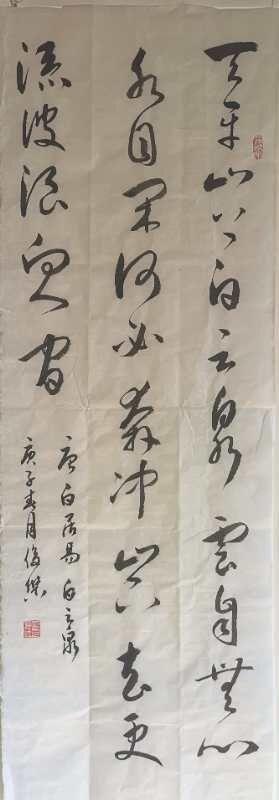 天平山上白云泉云自无心
水自闲何必奔冲山下去更
添波浪向人间
唐白居易白云泉
庚子春月俊杰